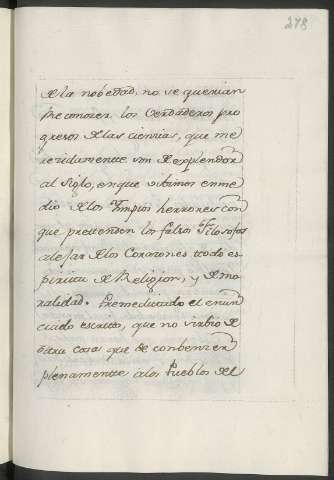 278
de la nobedad, no se querian
Reconocer los Verdaderos pro
gresos de las ciencias, que me
recidamentte son de explendor
al Siglo, en que vibimos enme
dio de los Impios herrores con
que prettenden los falsos Filosofos
alejar de los Corazones ttodo es
piritu de Religion, y de mo
ralidad. Premeditado el enun
ciado escrito, que no sirbio de
ôtra cosa que de conbenzer
plenamentte a los Pueblos del